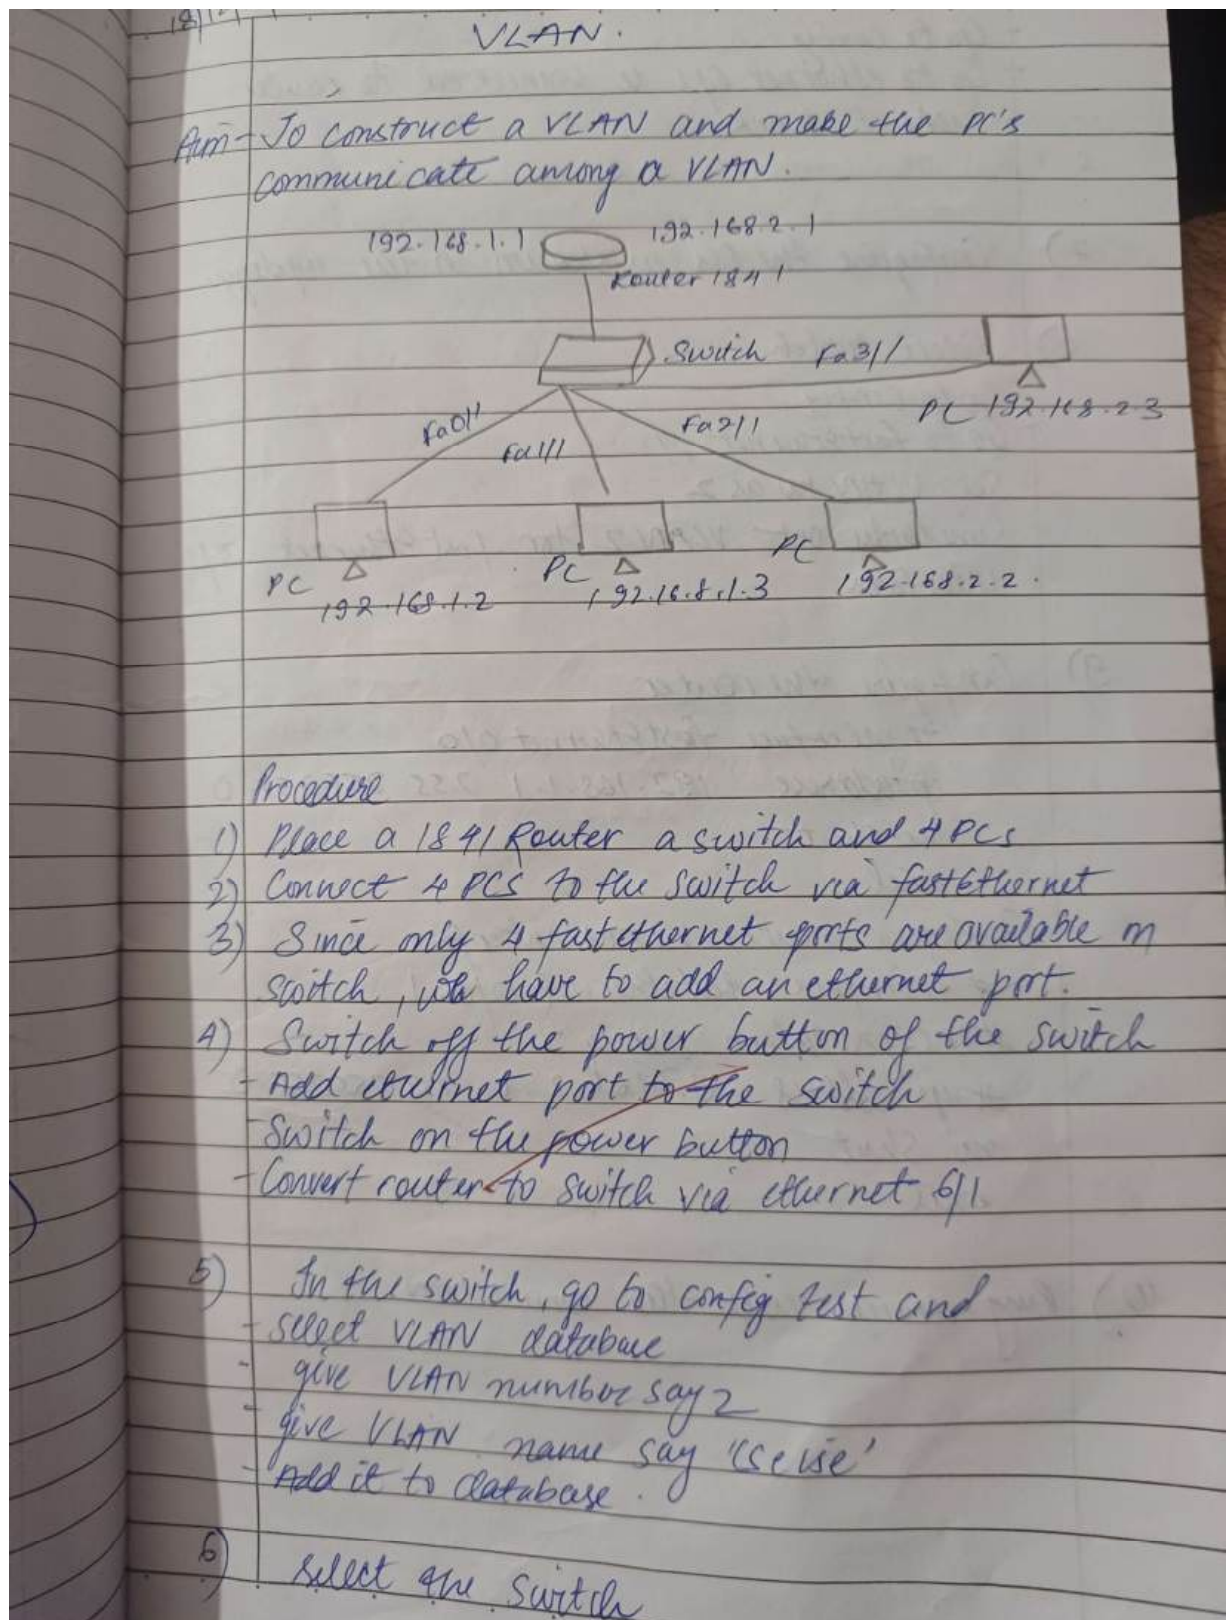 18/
VLAN.
Aim - To construct a VLAN and make the PC's
communicate among a VLAN.
192.168.1.1 192.168.2.1
Router 1841
Switch Fa3/1
PC 192.168.2.3
Fa0/1 Fa1/1 Fa2/1
PC PC PC
192.168.1.2 192.16.8.1.3 192.168.2.2.
Procedure
1) Place a 1841 Router a switch and 4 PCs
2) Connect 4 PCS to the switch via fastEthernet
3) Since only 4 fastethernet ports are available in
switch, we have to add an ethernet port.
4) Switch off the power button of the switch
- Add ethernet port to the switch
- Switch on the power button
- Convert router to switch via ethernet 6/1
5) In the switch, go to config test and
- select VLAN database
- give VLAN number say 2
- give VLAN name say
- Add it to database.
6) select the switch